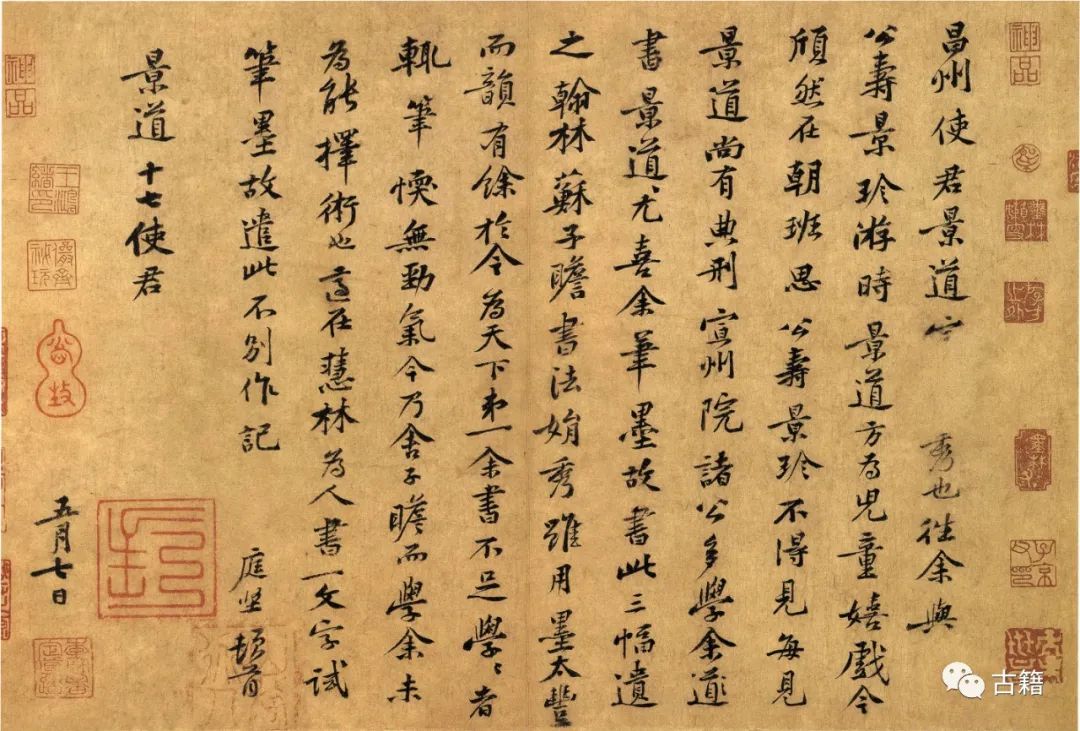 昌州使君景道 秀也往余與
公壽景珍游時景道方為兒童嬉戲今
頎然在朝班思公壽景珍不得見每見
景道尚有典刑宣州院諸公多學余道
書景道尤喜余筆墨故書此三幅遺
之翰林蘇子瞻書法娟秀雖用墨太豐
而韻有餘於今為天下弟一余書不足學〻者
輒筆愞無勁氣今乃舍子瞻而學余未
為能擇術也適在慧林為人書一文字試
筆墨故遣此不別作記
庭堅頓首
景道十七使君
五月七日
神品
神品
古籍